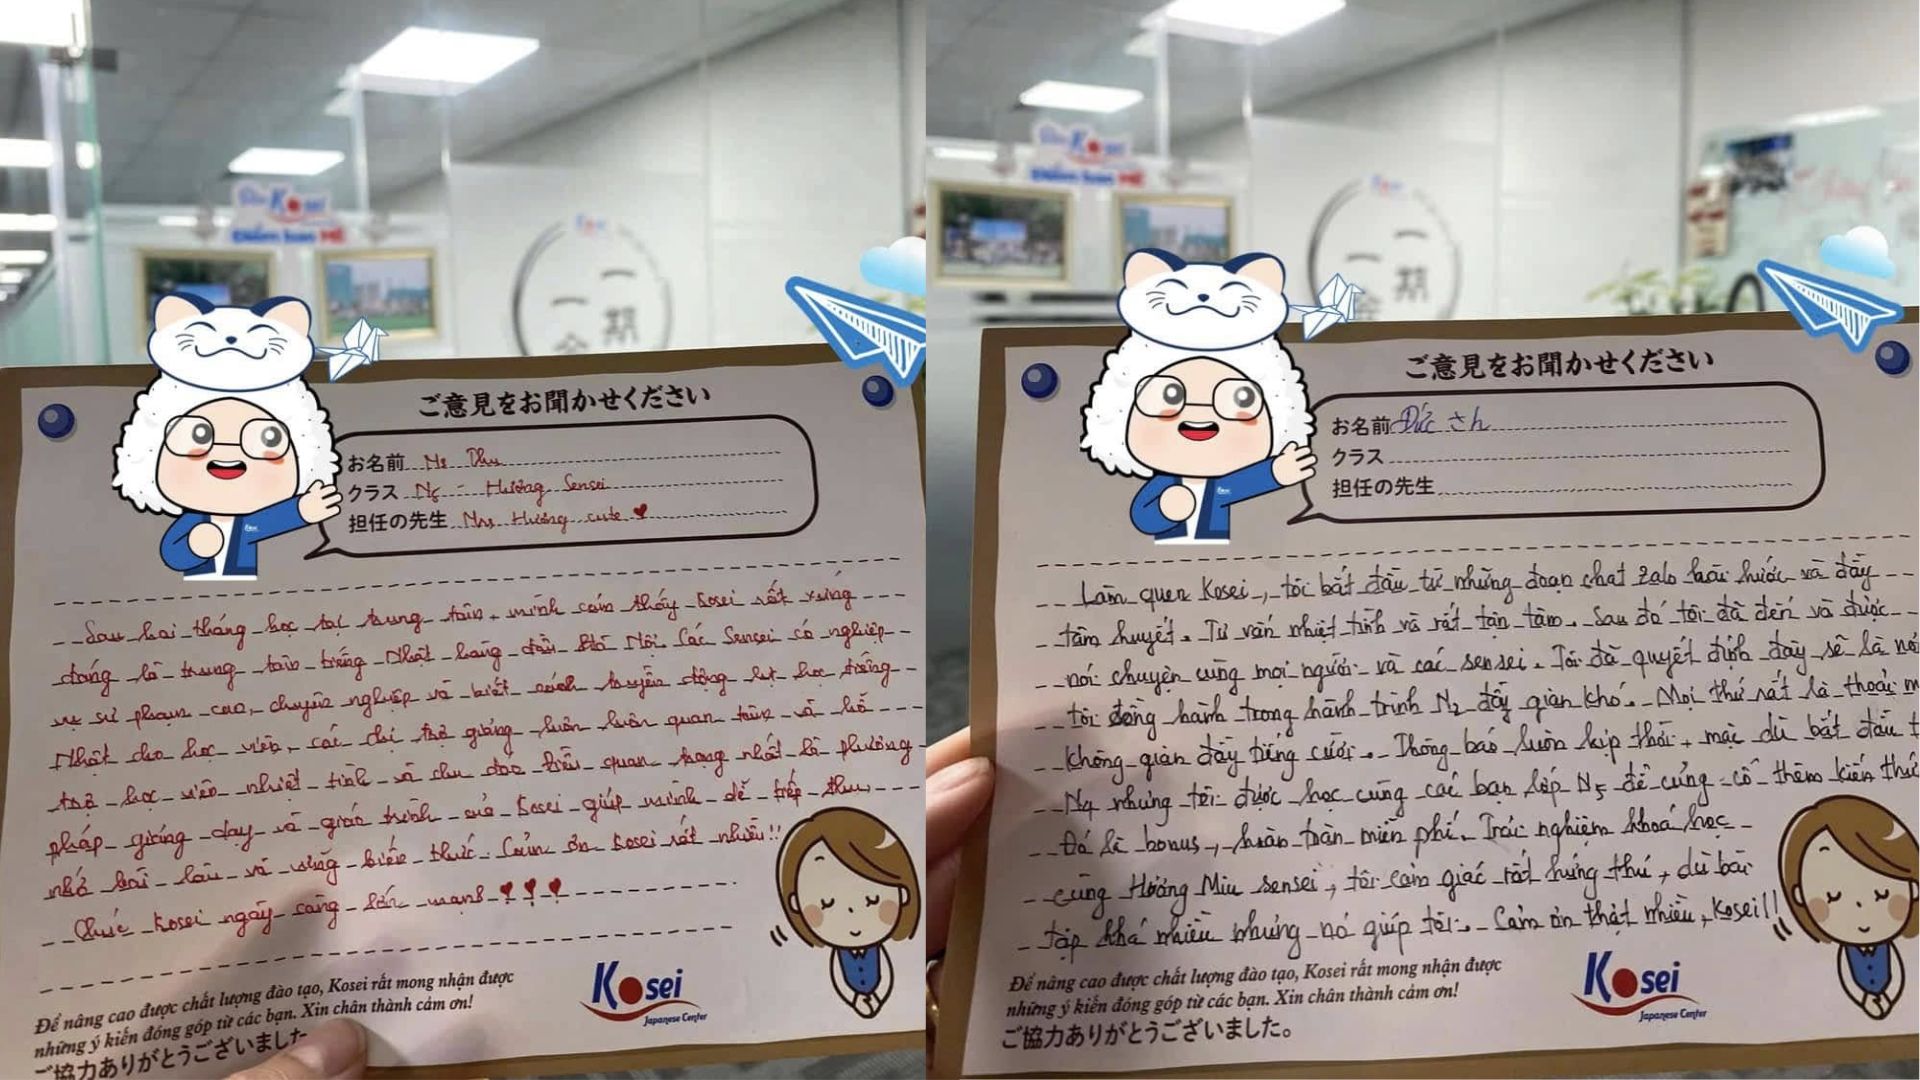 Kosei
一期
一会
ご意見をお聞かせください
お名前 Ms Thu
クラス N5 - Hương Sensei
担任の先生 Ms Hương cute
Sau hai tháng học tại trung tâm, mình cảm thấy Kosei rất xứng
đáng là trung tâm tiếng Nhật hàng đầu Hà Nội. Các Sensei có nghiệp
vụ sư phạm cao, chuyên nghiệp và biết cách truyền động lực học tiếng
Nhật cho học viên, các chị trợ giảng luôn luôn quan tâm và hỗ
trợ học viên nhiệt tình và chu đáo. Điều quan trọng nhất là phương
pháp giảng dạy và giáo trình của Kosei giúp mình dễ tiếp thu,
nhớ bài lâu và vững kiến thức. Cảm ơn Kosei rất nhiều!!
Chúc Kosei ngày càng lớn mạnh
Để nâng cao được chất lượng đào tạo, Kosei rất mong nhận được
những ý kiến đóng góp từ các bạn. Xin chân thành cảm ơn!
ご協力ありがとうございました
Kosei
Japanese Center
Kosei
一期
一会
ご意見をお聞かせください
お名前 Đức さん
クラス
担任の先生
Làm quen Kosei, tôi bắt đầu từ những đoạn chat Zalo hài hước và đầy
tâm huyết. Tư vấn nhiệt tình và rất tận tâm. Sau đó tôi đã đến và được
nói chuyện cùng mọi người và các sensei. Tôi đã quyết định đây sẽ là nơi
tôi đồng hành trong hành trình N2 đầy gian khó. Mọi thứ rất là thoải m
không gian đầy tiếng cười. Thông báo luôn kịp thời, mặc dù bắt đầu t
N4 nhưng tôi được học cùng các bạn lớp N5 để củng cố thêm kiến thức
Đó là bonus, hoàn toàn miễn phí. Trải nghiệm khoá học
cùng Hương Miu sensei, tôi cảm giác rất hứng thú, dù bài
tập khá nhiều nhưng nó giúp tôi. Cảm ơn thật nhiều, Kosei!!
Để nâng cao được chất lượng đào tạo, Kosei rất mong nhận được
những ý kiến đóng góp từ các bạn. Xin chân thành cảm ơn!
ご協力ありがとうございました。
Kosei
Japanese Center